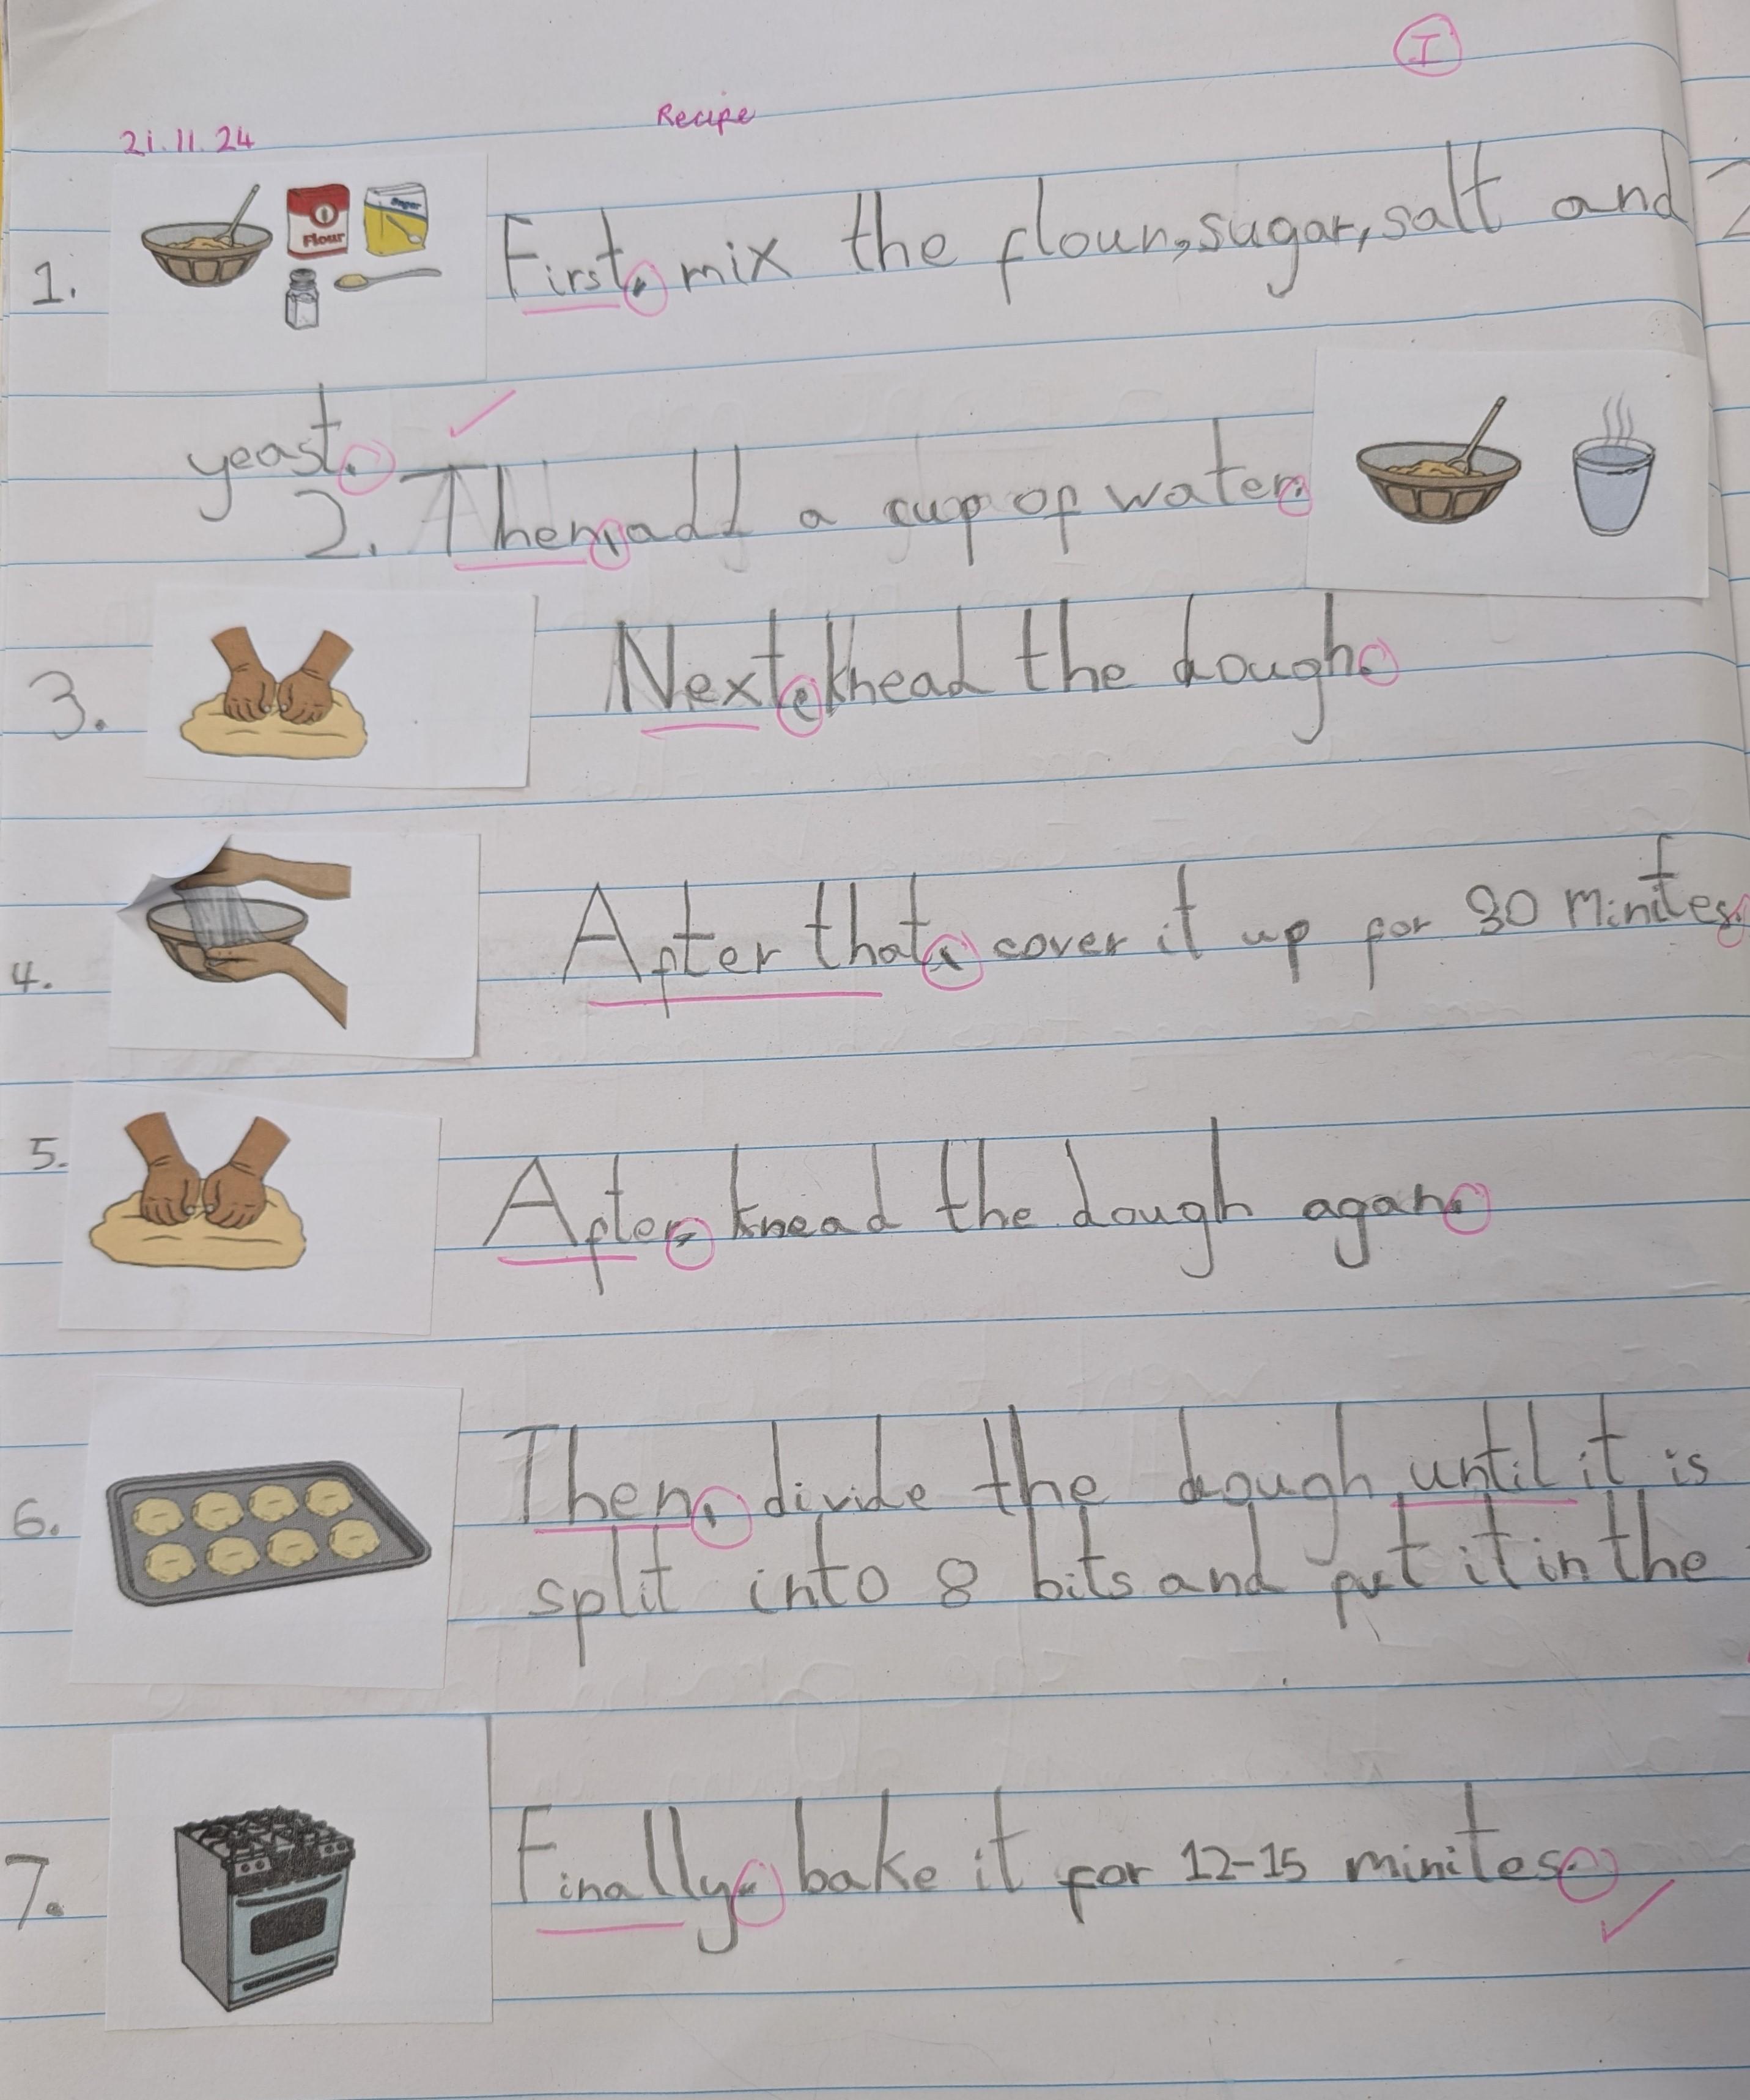 I
21.11.24 Recipe
Flour Sugar
1. First, mix the flour, sugar, salt and
yeast.
2. Then, add a cup of water.
3. Next, knead the dough.
4. After that, cover it up for 30 minites.
5. After, knead the dough agan.
6. Then, divide the dough until it is
split into 8 bits and put it in the
7. Finally, bake it for 12-15 minites.